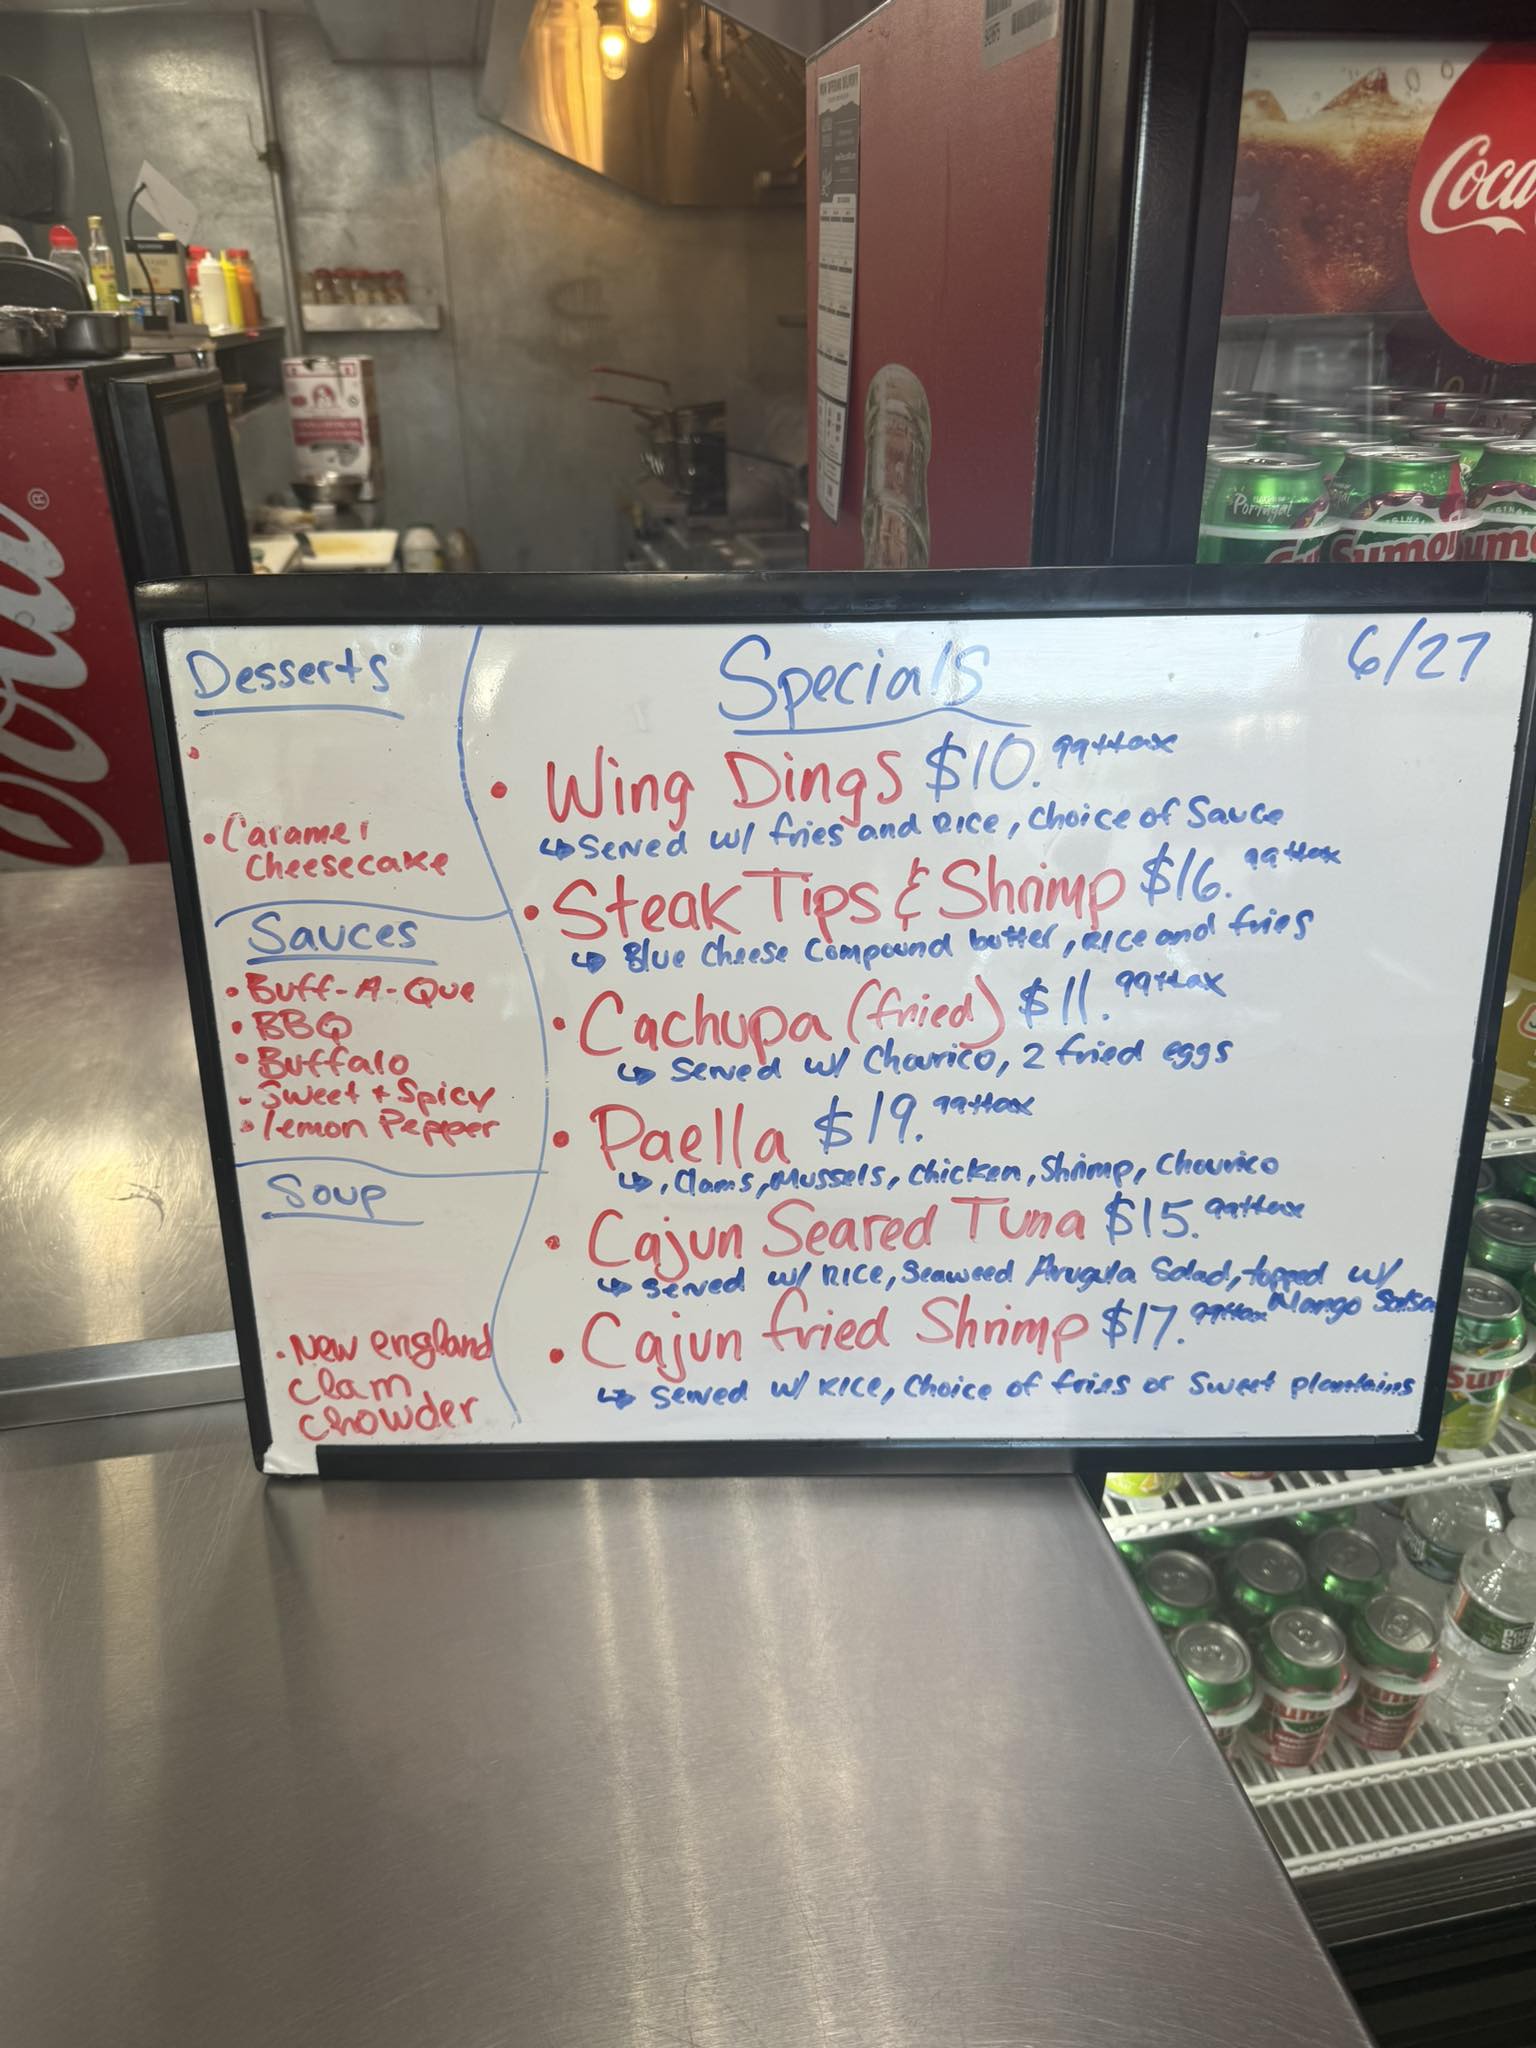 Desserts
• Caramel
Cheesecake
Sauces
• Buff-A-Que
• BBQ
• Buffalo
• Sweet + Spicy
• lemon Pepper
Soup
• New england
Clam
Chowder
Specials
6/27
• Wing Dings $10.99+tax
↳ Served w/ fries and Rice, Choice of Sauce
• Steak Tips & Shrimp $16.99+tax
↳ Blue Cheese Compound butter, Rice and fries
• Cachupa (fried) $11.99+tax
↳ Served w/ Chourico, 2 fried eggs
• Paella $19.99+tax
↳ , Clams, Mussels, Chicken, Shrimp, Chourico
• Cajun Seared Tuna $15.99+tax
↳ Served w/ Rice, Seaweed Arugula Salad, topped w/
Mango Salsa
• Cajun fried Shrimp $17.99+tax
↳ Served w/ Rice, Choice of fries or Sweet plantains
Coca
Portugal
Sumol